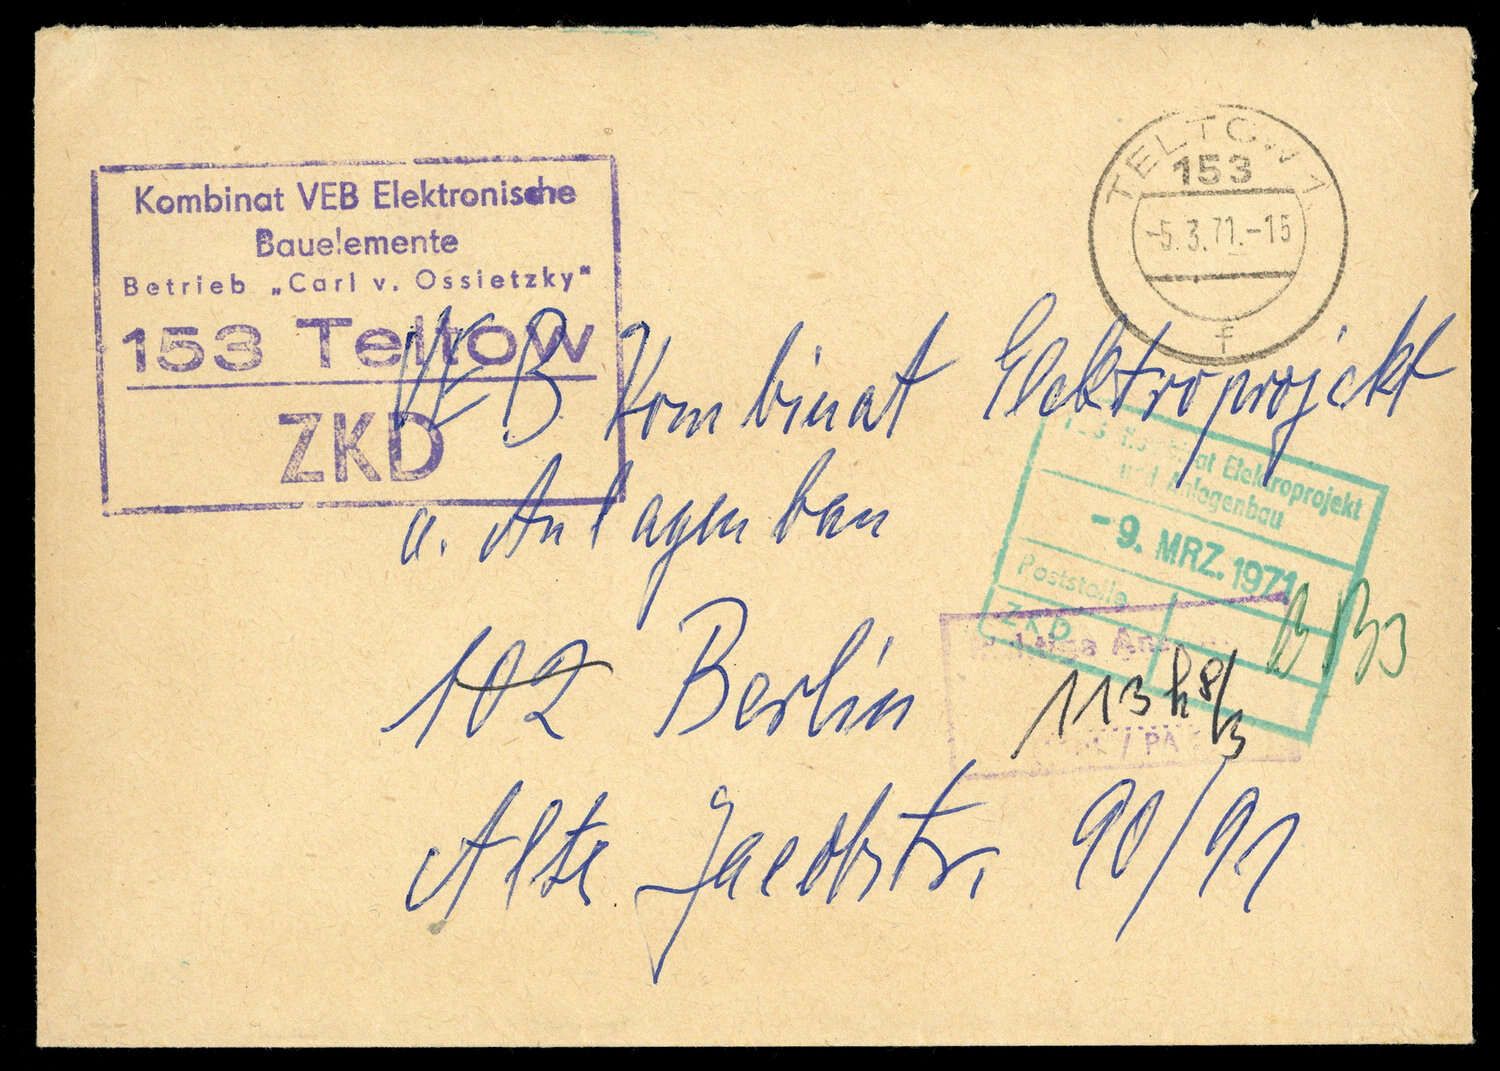 Kombinat VEB Elektronische
Bauelemente
Betrieb „Carl v. Ossietzky"
153 Teltow
ZKD
TELTOW 1
153
-5.3.71.-15
f
VEB Kombinat Elektroprojekt
u. Anlagenbau
102 Berlin
Alte Jacobstr. 90/91
Kombinat Elektroprojekt
und Anlagenbau
-9. MRZ. 1971
Poststelle
ZKD
113 h 8/3
/ PA